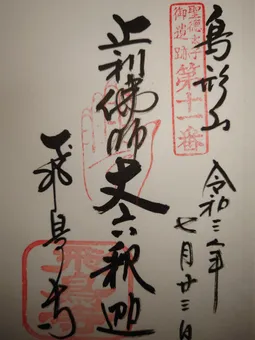 鳥形山
聖徳太子
御遺跡
第十一番
令和三年
七月廿三日
止利佛師丈六釈迦
飛鳥寺